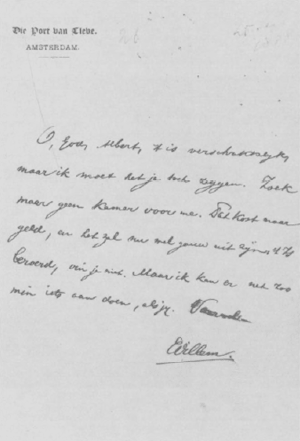 Die Port van Cleve.
AMSTERDAM.
O, God, Albert, 't is verschrikkelijk,
maar ik moet het je toch zeggen. Zoek
maar geen kamer voor me. Dat kost maar
geld, en het zal me wel gauw uit zijn. 't Is
beroerd, vin je niet. Maar ik kan er net zoo
min iets aan doen, als jy.
Willem.